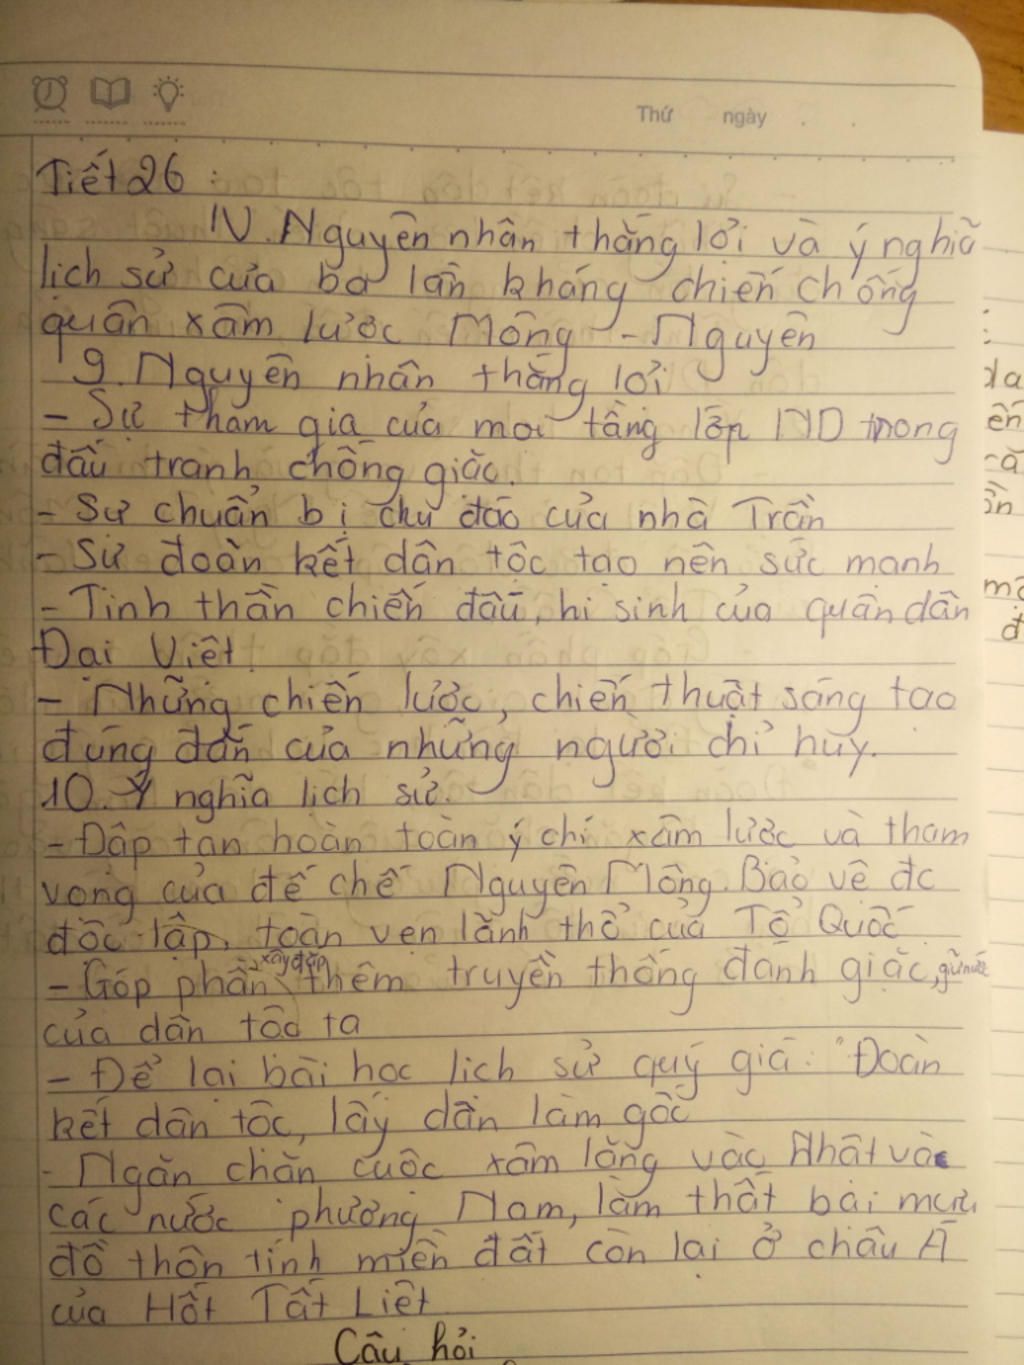 Thứ ngày
Tiết 26 :
IV. Nguyên nhân thắng lợi và ý nghĩa
lịch sử của ba lần kháng chiến chống
quân xâm lược Mông - Nguyên
9. Nguyên nhân thắng lợi
- Sự tham gia của mọi tầng lớp ND trong
đấu tranh chống giặc.
- Sự chuẩn bị chu đáo của nhà Trần
- Sự đoàn kết dân tộc tạo nên sức mạnh
- Tinh thần chiến đấu, hi sinh của quân dân
Đại Việt.
- Những chiến lược, chiến thuật sáng tạo
đúng đắn của những người chỉ huy.
10. Ý nghĩa lịch sử.
- Đập tan hoàn toàn ý chí xâm lược và tham
vọng của đế chế Nguyên Mông. Bảo vệ đc
độc lập, toàn vẹn lãnh thổ của Tổ Quốc
- Góp phần xây đắp thêm truyền thống đánh giặc, giữ nước
của dân tộc ta
- Để lại bài học lịch sử quý giá: "Đoàn
kết dân tộc, lấy dân làm gốc
- Ngăn chặn cuộc xâm lăng vào Nhật và
các nước phương Nam, làm thất bại mưu
đồ thôn tính miền đất còn lại ở châu Á
của Hốt Tất Liệt
Câu hỏi